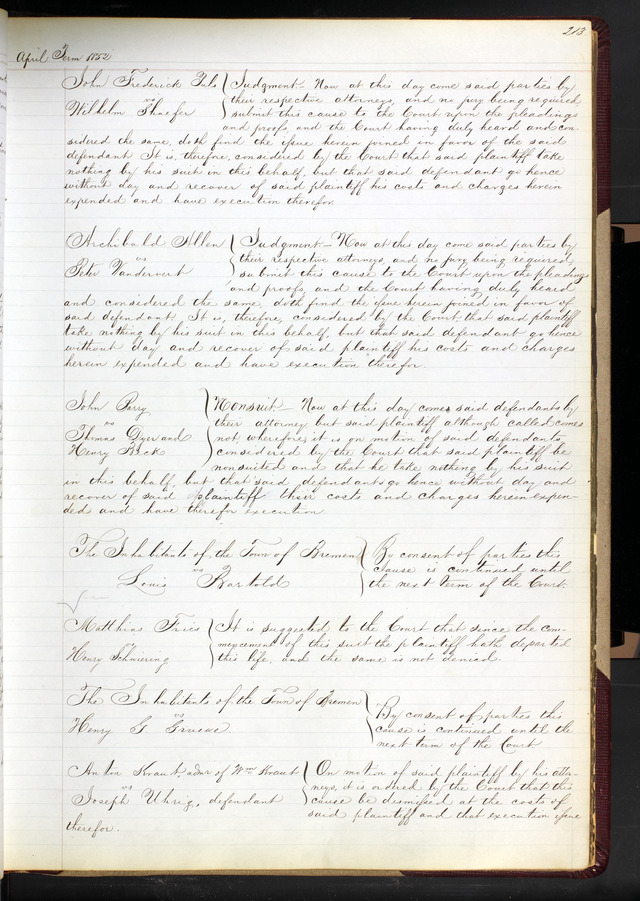 213
April Term 1852
John Frederick Pals { Judgment - Now at this day come said parties by
vs their respective attorneys, and no jury being required,
Wilhelm Shaefer submit this cause to the Court upon the pleadings
and proofs, and the Court having duly heard and con-
sidered the same, doth find the issue herein joined in favor of the said
defendant It is, therefore, considered by the Court that said plaintiff take
nothing by his suit in this behalf, but that said defendant go hence
without day and recover of said plaintiff his costs and charges herein
expended and have execution therefor.
Archibald Allen { Judgment - Now at this day come said parties by
vs their respective attorneys, and no jury being required,
Peter Vandervert submit this cause to the Court upon the pleadings
and proofs, and the Court having duly heard
and considered the same, doth find the issue herein joined in favor of
said defendant. It is, therefore, considered by the Court, that said plaintiff
take nothing by his suit in this behalf, but that said defendant go hence
without day and recover of said plaintiff his costs and charges
herein expended and have execution therefor.
John Parry } Nonsuit - Now at this day comes said defendants by
vs their attorney but said plaintiff although called comes
Thomas Dyer and not, wherefore, it is on motion of said defendants
Henry considered by the Court that said plaintiff be
nonsuited and that he take nothing by his suit
in this behalf, but that said defendants go hence without day and
recover of said plaintiff their costs and charges herein expen-
ded and have therefor execution.
The Inhabitants of the Town of Bremen } By consent of parties this
vs cause is continued until
Louis Bartold the next term of the Court.
Matthias Fries { It is suggested to the Court that since the com-
mencement of this suit the plaintiff hath departed
Henry Schwering this life, and the same is not denied.
The Inhabitants of the Town of Bremen } By consent of parties this
vs cause is continued until the
Henry G next term of the Court
Anton Kraut, admr of Wm Kraut } On motion of said plaintiff by his attor-
vs neys, it is ordered by the Court that this
Joseph Uhrig, defendant cause be dismissed at the costs of
said plaintiff and that execution issue
therefor.